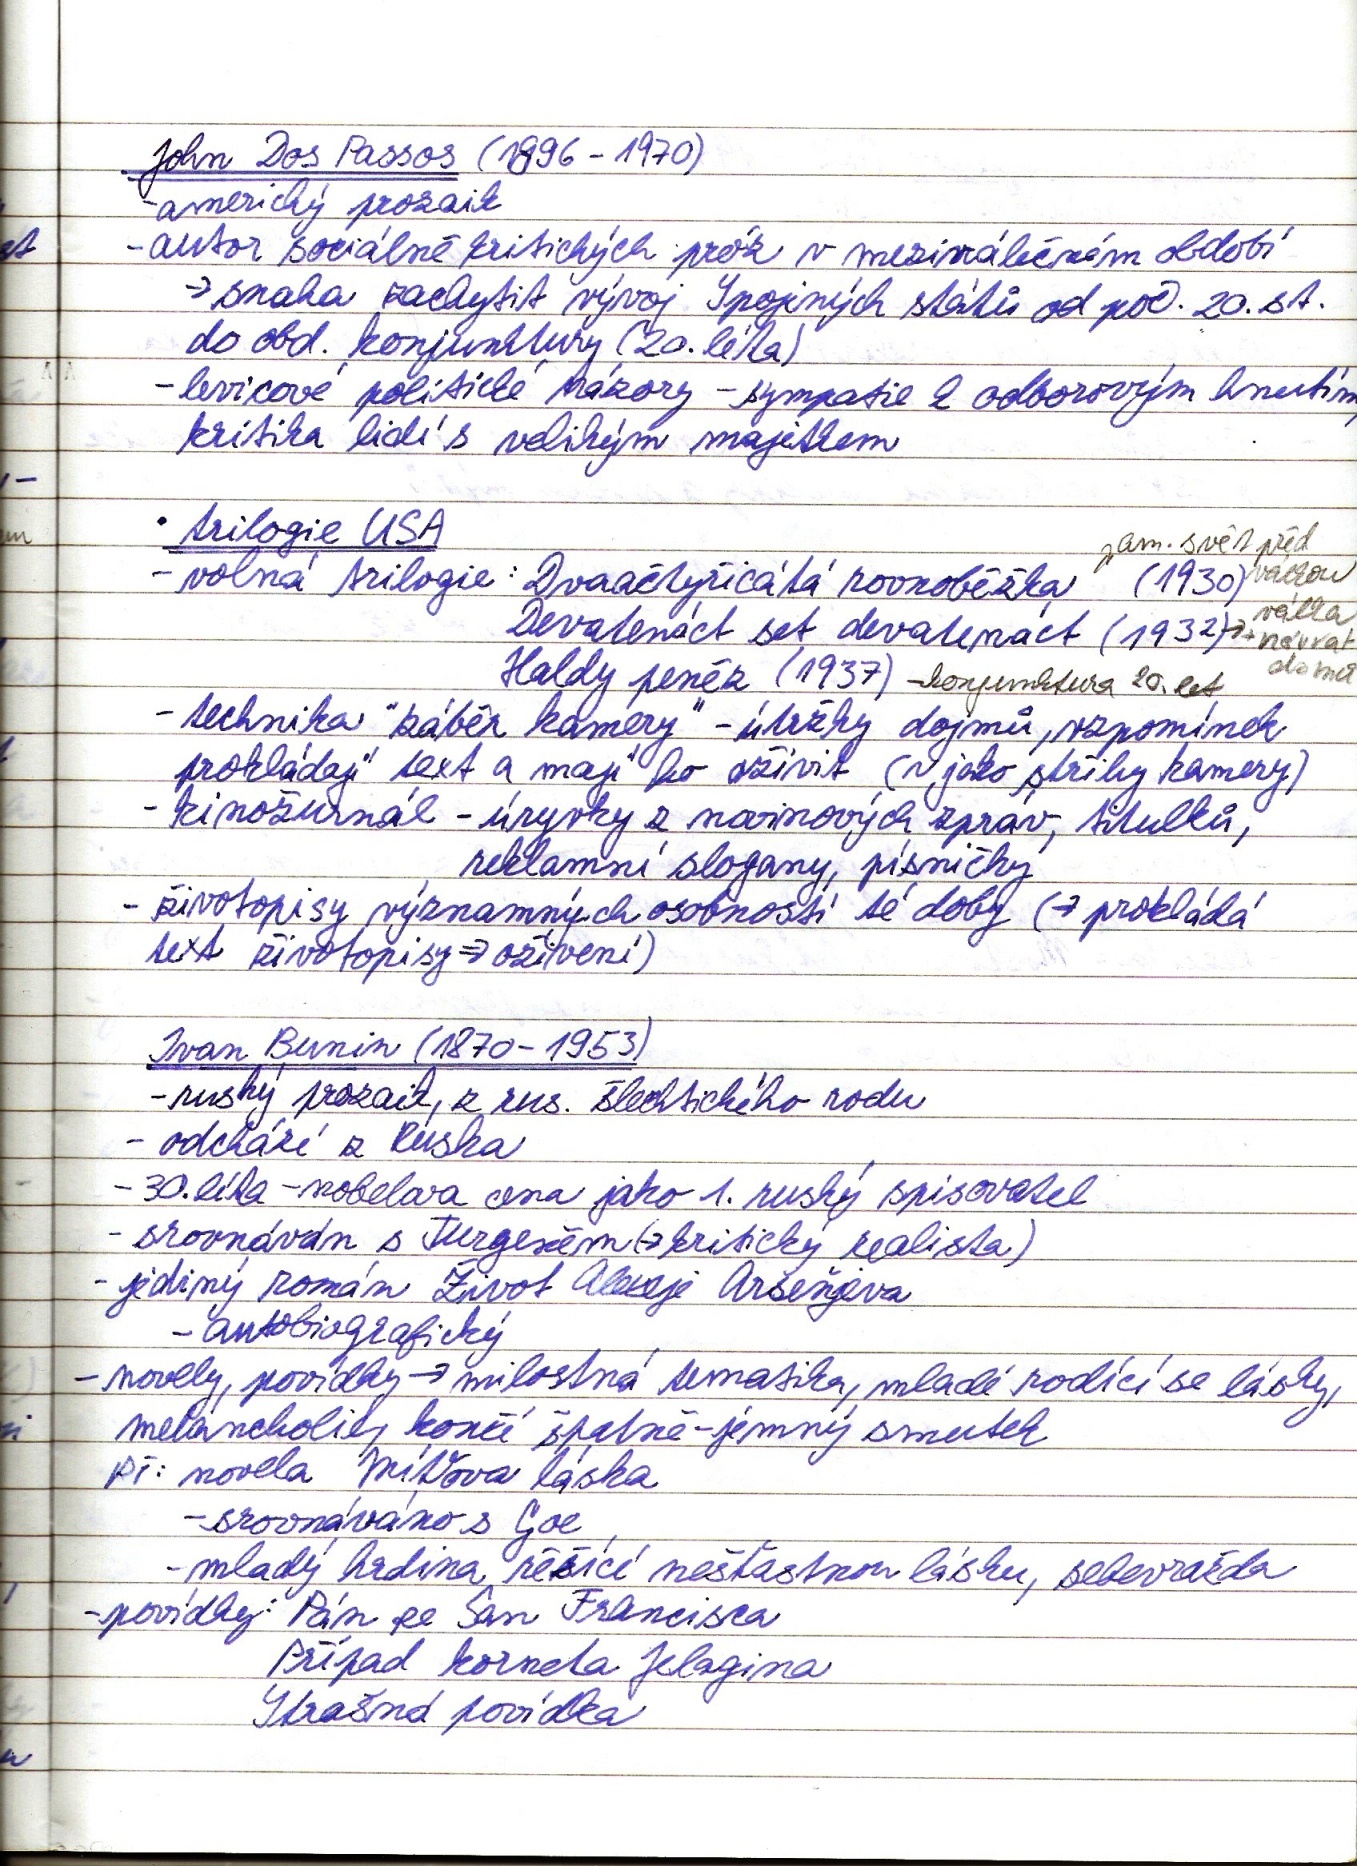 John Dos Passos (1896 - 1970)
- americký prozaik
- autor sociálně kritických próz v meziválečném období
→ snaha zachytit vývoj Spojených států od poč. 20. st.
do obd. konjunktury (20. léta)
- levicové politické názory - sympatie k odborovým hnutím,
kritika lidí s velikým majetkem
• trilogie USA
am. svět před
válkou
- volná trilogie: Dvaačtyřicátá rovnoběžka (1930)
Devatenáct set devatenáct (1932) → válka
+ návrat
domů
Haldy peněz (1937) - konjunktura 20. let
- technika "záběr kamery" - útržky dojmů, vzpomínek
prokládají text a mají ho oživit (v jako střihy kamery)
- kinožurnál - úryvky z novinových zpráv, titulků,
reklamní slogany, písničky
- životopisy významných osobností té doby (→ prokládá
text životopisy ⇒ oživení)
Ivan Bunin (1870 - 1953)
- ruský prozaik, z rus. šlechtického rodu
- odchází z Ruska
- 30. léta - nobelova cena jako 1. ruský spisovatel
- srovnáván s Turgeněm (→ kritický realista)
- jediný román Život Alexeje Arseňjeva
- autobiografický
- novely, povídky → milostná tematika, mladé rodící se lásky,
melancholie, končí špatně - jemný smutek
př: novela Míťova láska
- srovnáváno s Goe
- mladý hrdina řešící nešťastnou lásku, sebevražda
- povídky: Pán ze San Francisca
Případ korneta Jelagina
Strašná povídka